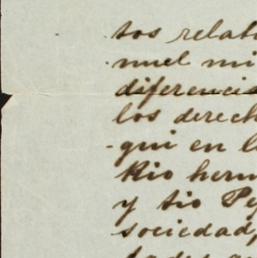 tos relati
nuel mi
diferencia
los derech
qui en l
Rio herm
y tio Pe
sociedad,